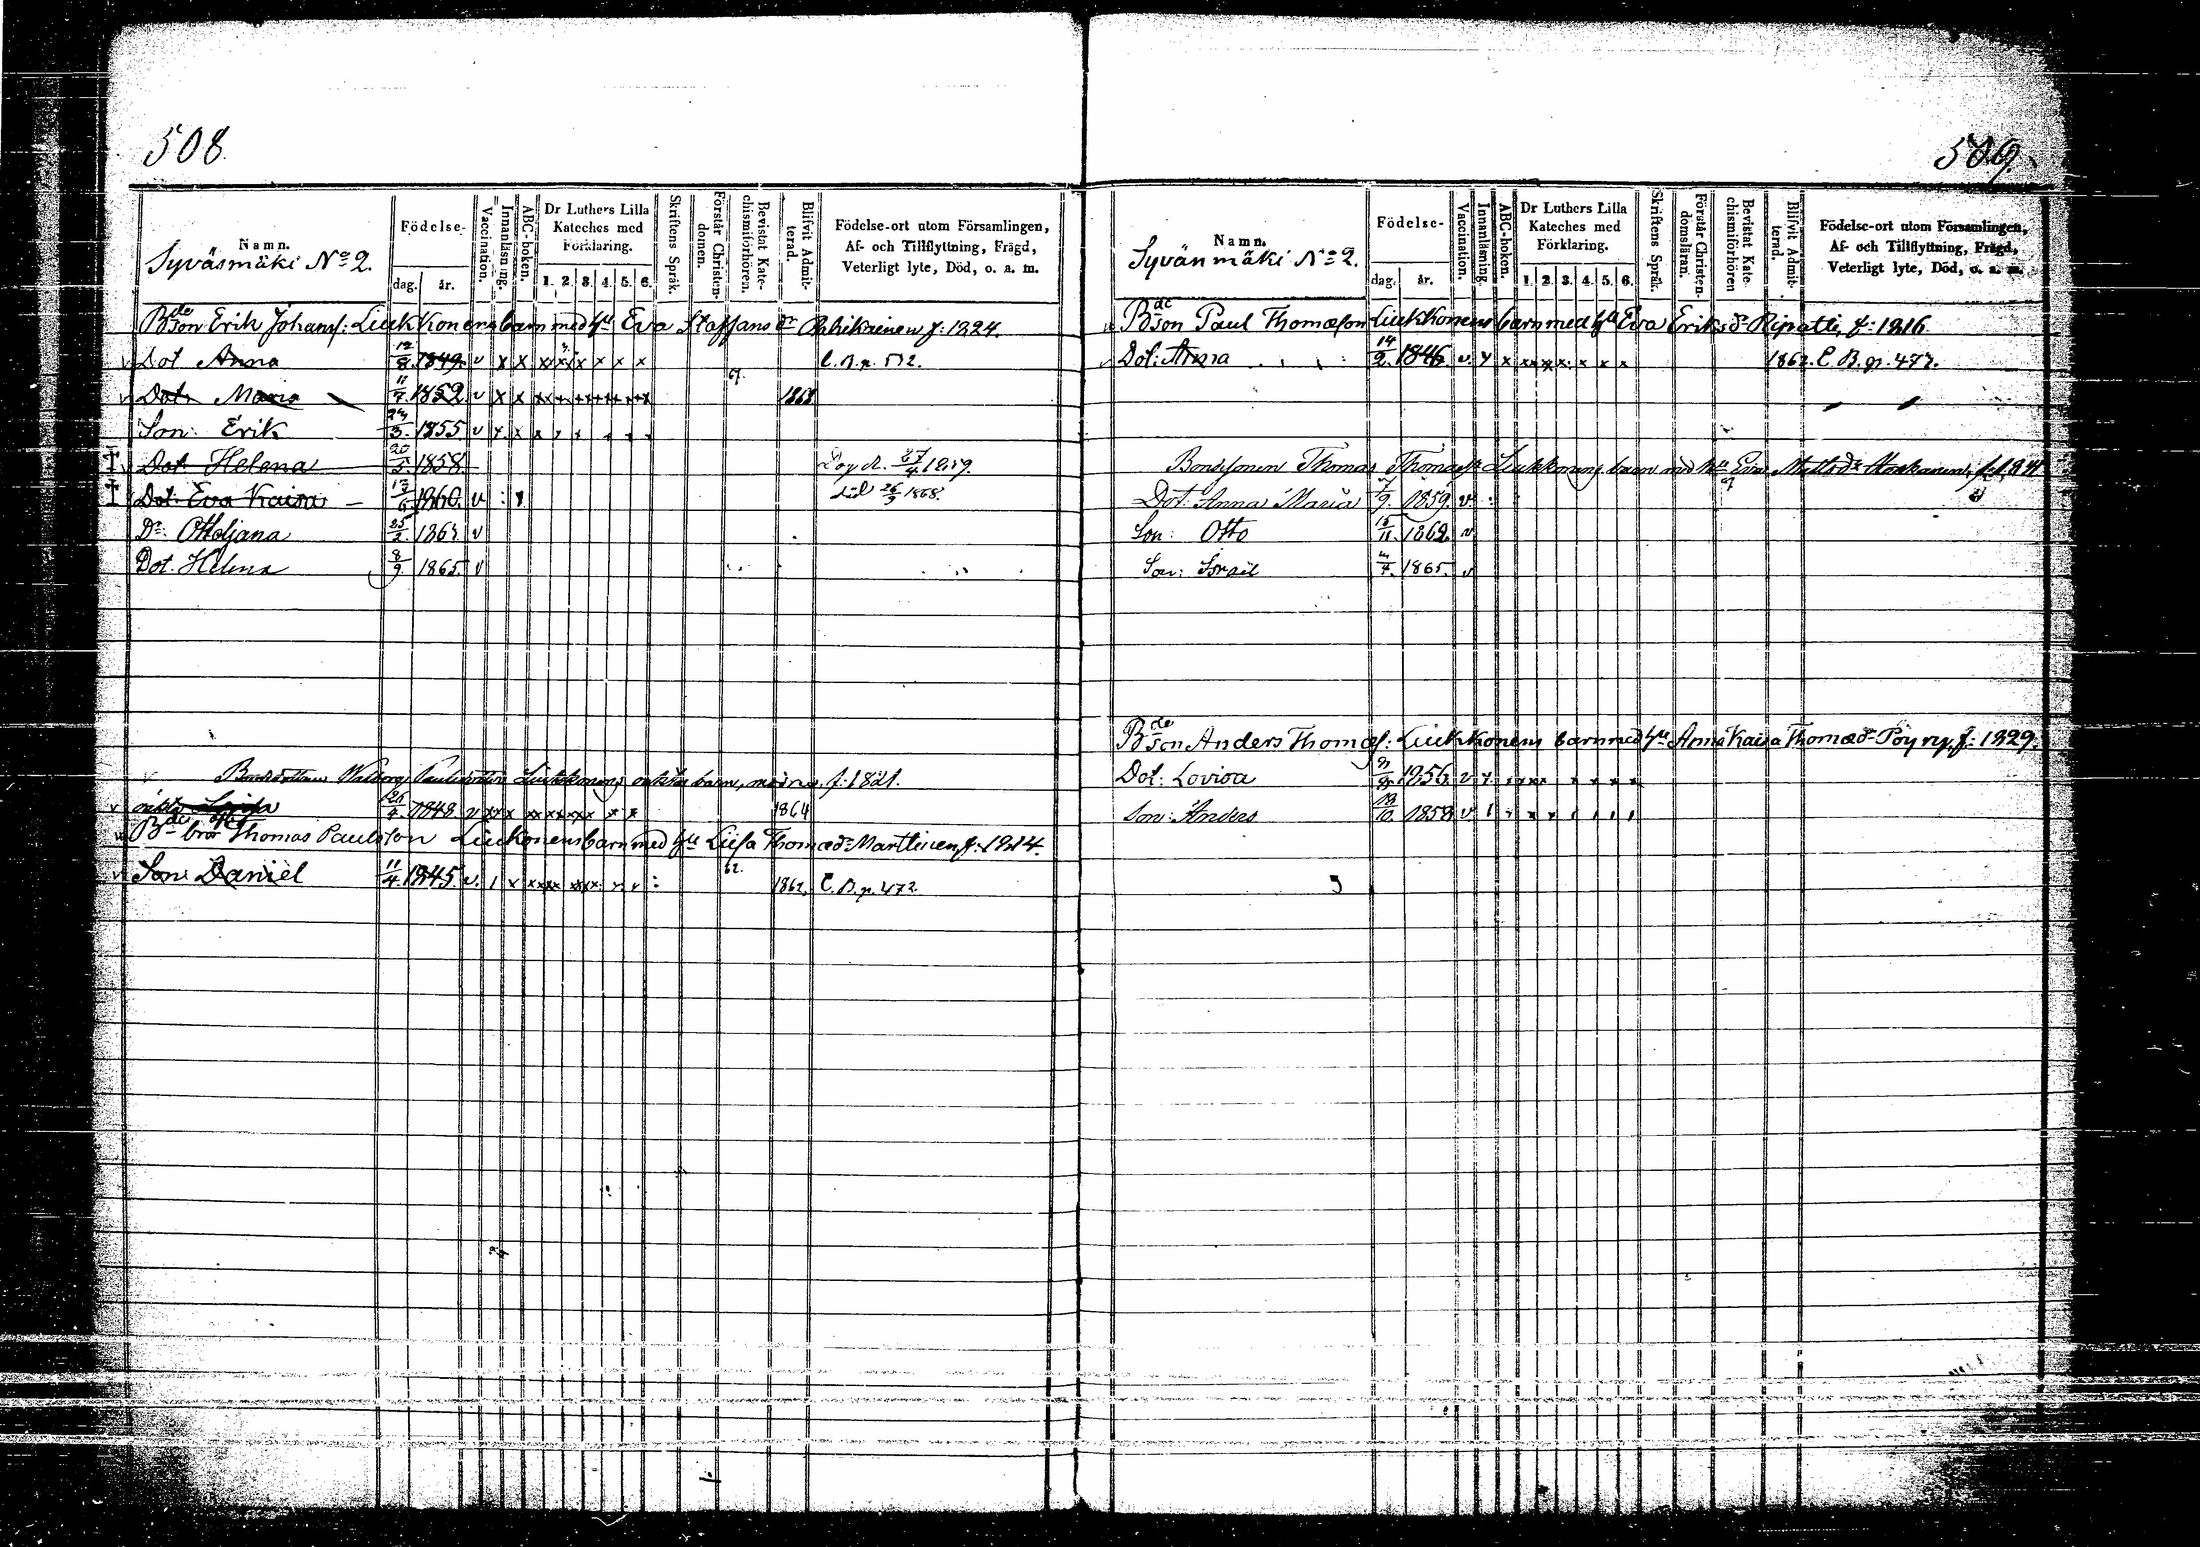 508.
Namn.
Syväsmäki No 2.
Födelse-
dag. år.
Vaccination.
Innanläsning.
ABC-boken.
Dr Luthers Lilla
Kateches med
Förklaring.
1. 2. 3. 4. 5. 6.
Skriftens Språk.
Förstår Christen-
domen.
Bevistat Kate-
chismiförhören.
Blifvit Admit-
terad.
Födelse-ort utom Församlingen,
Af- och Tillflyttning, Frägd,
Veterligt lyte, Död, o. a. m.
Bdeson Erik Johansf: Liukkonens barn med hu Eva Staffans dr f: 1824.
v Dot Anna 12/8 1849. v x x xx xx x x x x C.B.p. 512.
v Dot: Maria 11/7 1852 v x x 67 1868
Son: Erik 23/3 1855 v x x x
† v Dot Helena 20/5 1858. Dog d. 27/4 1859.
† Dot: Eva Kaisa 13/6 1860. v död 26/9 1868.
Dr: Ottoljana 25/2 1863 v
Dot. Helena 8/9 1865. v
Bondedottern Walborg Paulsdotter Liukkonens oäkta barn, f. 1821.
v oäkta 26/4 1848 v xx x 1864
Bde bror Thomas Paulsson Liukonens barn med hu Liisa Thomædr Martinen f: 1814.
v Son: Daniel 11/4 1845. v. 1 x 62. 1862. C.B.p. 472.
509.
Namn.
Syvänmäki No 2.
Födelse-
dag. år.
Vaccination.
Innanläsning.
ABC-boken.
Dr Luthers Lilla
Kateches med
Förklaring.
1. 2. 3. 4. 5. 6.
Skriftens Språk.
Förstår Christen-
domsläran.
Bevistat Kate-
chismiförhören
Blifvit Admit-
terad.
Födelse-ort utom Församlingen,
Af- och Tillflyttning, Frägd,
Veterligt lyte, Död, o. a. m.
Bdeson Paul Thomæson Liukkonens barn med hu Eva Eriksdr Ripatti, f: 1816.
v Dot: Anna 14/2. 1846. v. x x xx xx x x x x 1862. C.B.p. 477.
Bondsonen Thomas Thomæsson Liukkonens barn med hu Eva Mattsdr
Dot: Anna Maria 7/9. 1859. v.
Son: Otto 15/11. 1862. v
Son: Israil 3/4. 1865. v
Bdeson Anders Thomæf: Liukkonens barn med hu Anna Kaisa Thomædr Pöyry, f: 1829.
Dot: Lovisa 1856. v
Son: Anders 18/10. 1858 v